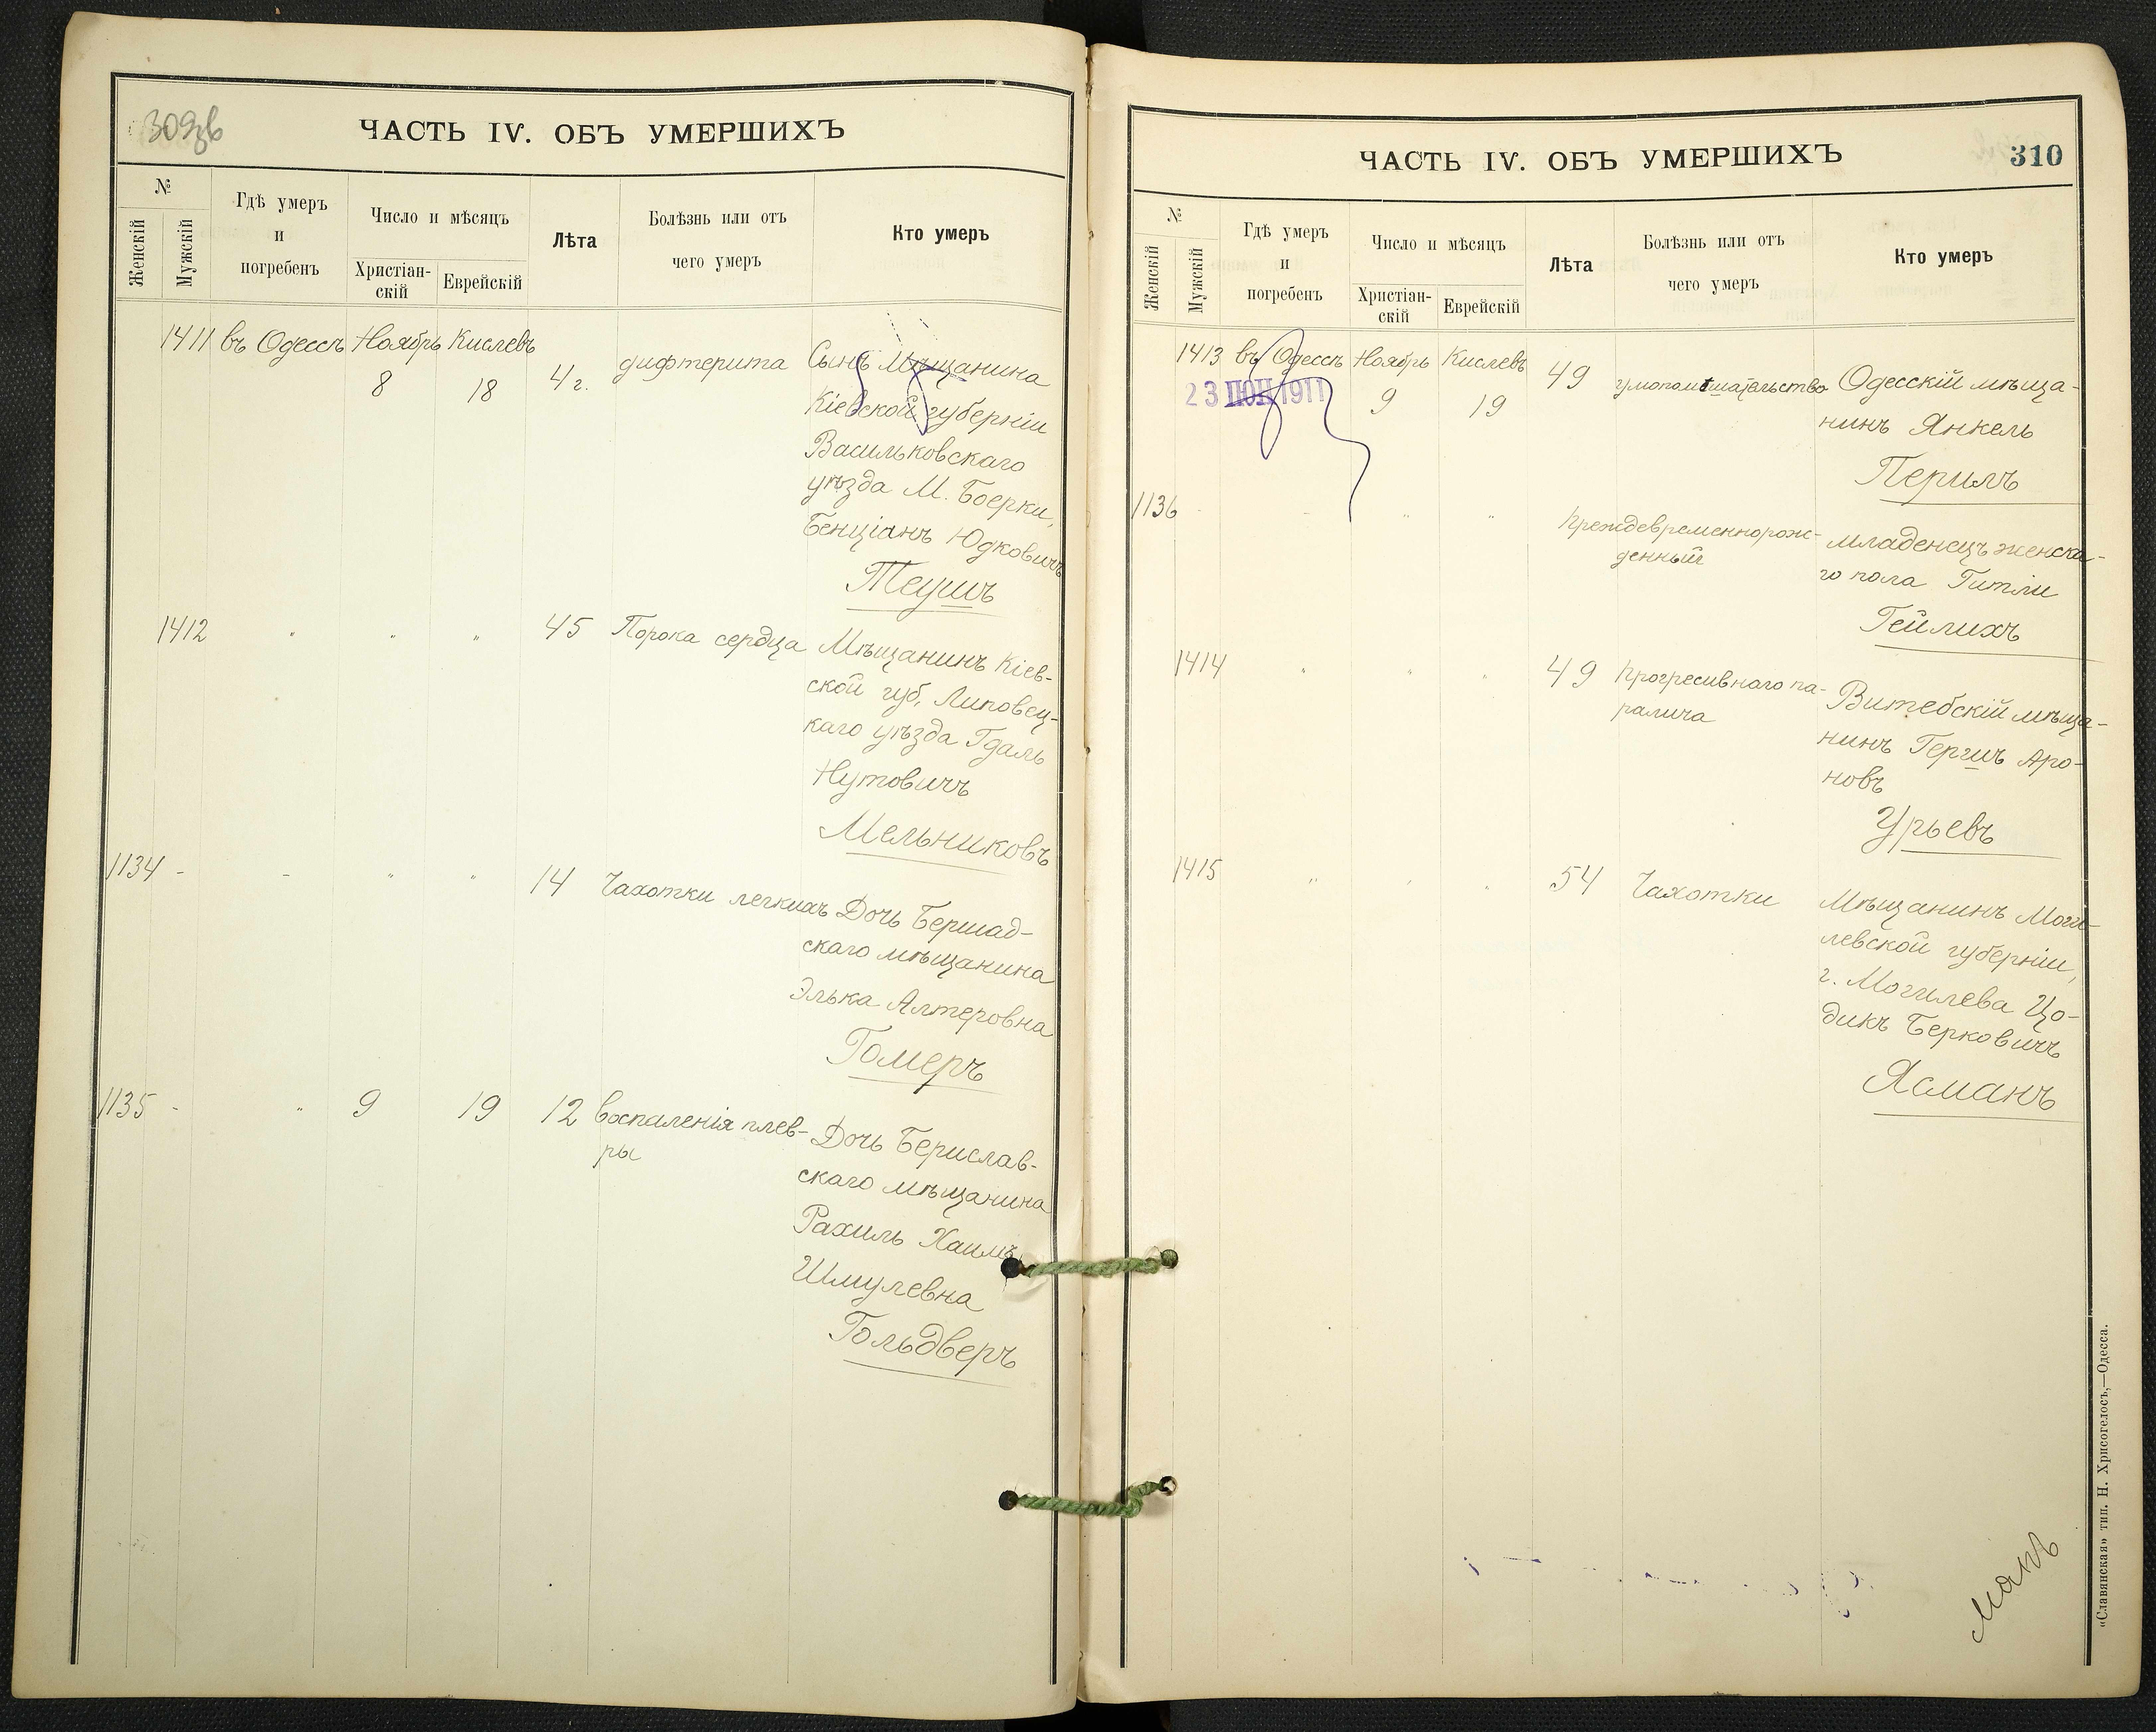 309об
ЧАСТЬ IV. ОБЪ УМЕРШИХЪ
№
Женскій
Мужскій
Гдѣ умеръ
и
погребенъ
Число и мѣсяцъ
Христіан-
скій
Еврейскій
Лѣта
Болѣзнь или отъ
чего умеръ
Кто умеръ
1411 въ Одессѣ Ноябрь Кислевъ
8 18 4 г. дифтерита Сынъ Мѣщанина
Кіевской губерніи
Васильковскаго
уѣзда М. Боерки,
Бенціанъ Юдковичъ
Теушъ
1412 " " " 45 Порока сердца Мѣщанинъ Кіев-
ской губ. Липовец-
каго уѣзда Гдаль
Нутовичъ
Мельниковъ
1134 - - " " 14 Чахотки легкихъ Дочь Бершад-
скаго мѣщанина
Элька Алтеровна
Гомеръ
1135 - " 9 19 12 воспаленія плев- Дочь Берислав-
ры
скаго мѣщанина
Рахиль Хаимъ
Шмулевна
Гольдверъ
ЧАСТЬ IV. ОБЪ УМЕРШИХЪ
310
№
Женскій
Мужскій
Гдѣ умеръ
и
погребенъ
Число и мѣсяцъ
Христіан-
скій
Еврейскій
Лѣта
Болѣзнь или отъ
чего умеръ
Кто умеръ
1413 въ Одессѣ Ноябрь Кислевъ
23 ІЮН 1911
9 19 49 умопомѣшательство Одесскій мѣща-
нинъ Янкель
Перилъ
1136 - - " " Преждевременнорож-
денный
младенецъ женска-
го пола Гитли
Гейлихъ
1414 " " " 49 Прогресивнаго па-
ралича
Витебскій мѣща-
нинъ Гершъ Аро-
новъ
Урьевъ
1415 " " " 54 Чахотки Мѣщанинъ Моги-
левской губерніи,
г. Могилева Цо-
дикъ Берковичъ
Ясманъ
манъ
«Славянская» тип. Н. Хрисогелосъ,—Одесса.